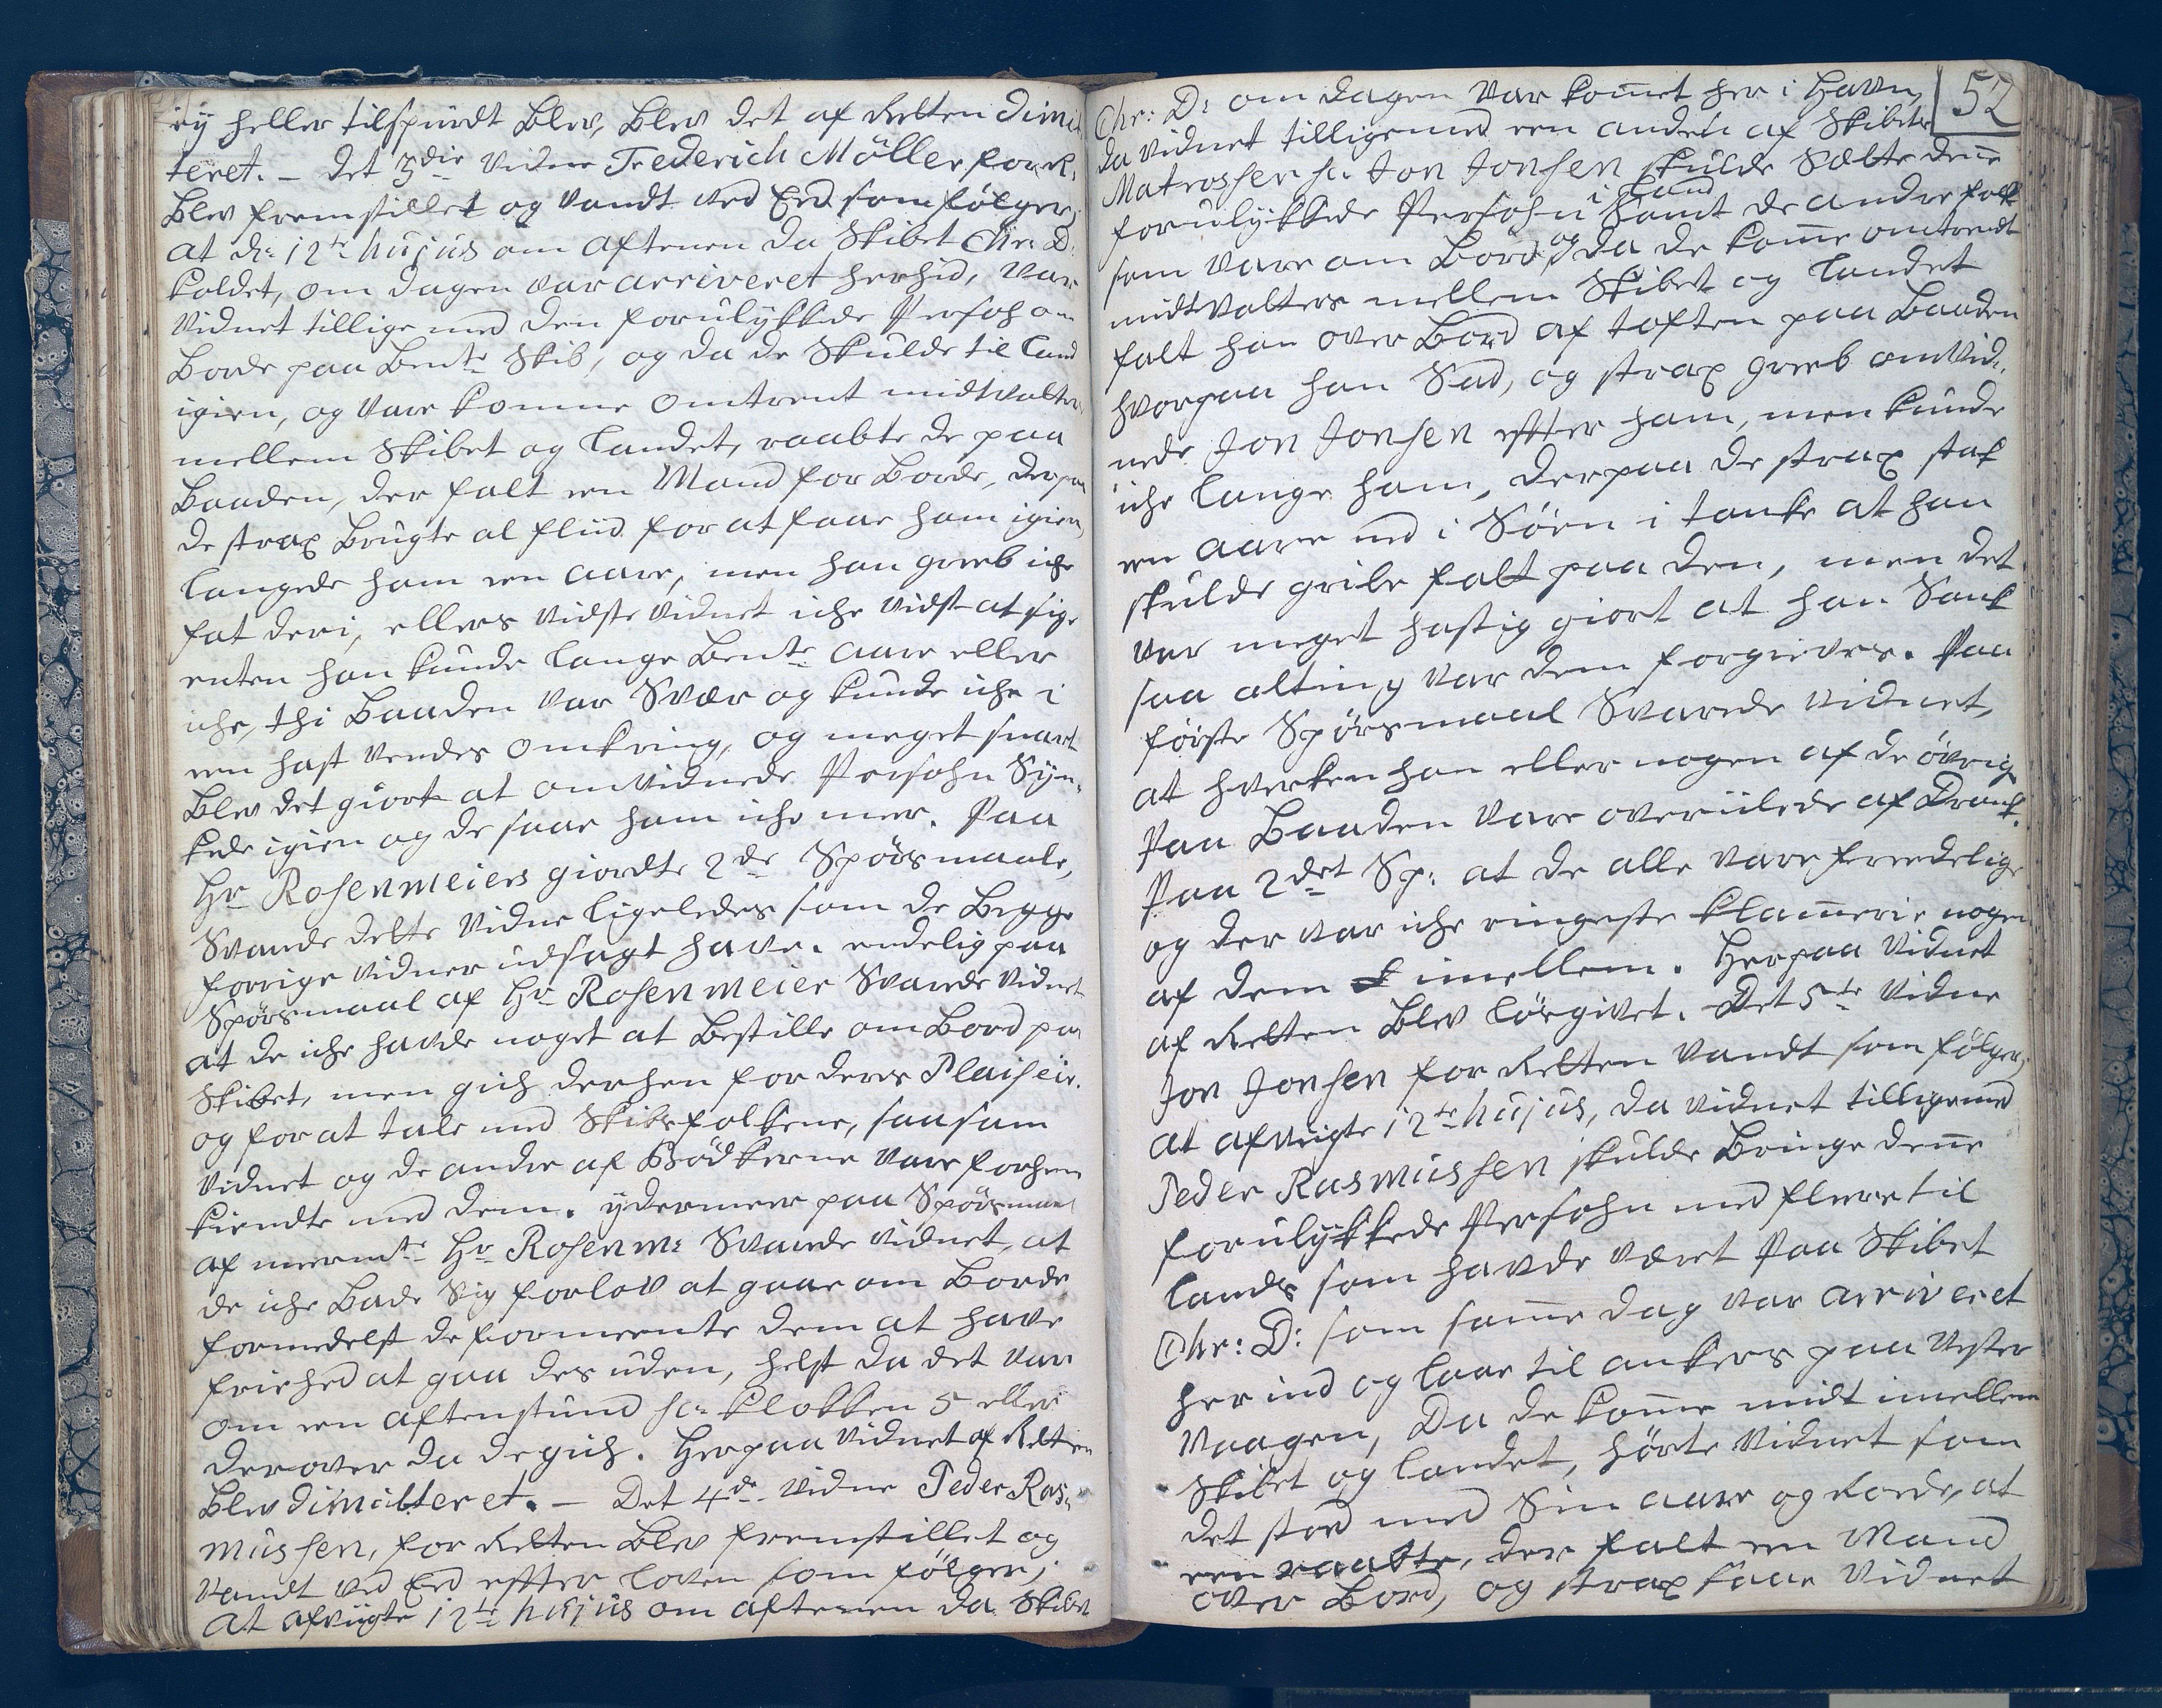 ey heller tilspurdt blev, blev det af Retten dimit
teret. – det 3die vidne Frederich Möller for R.
blev fremstillet og vandt ved Eed som følger;
at d: 12te hujus om aftenen da Skibet Chr: D:
kaldet, om dagen var arriveret herhid, var
vidnet tillige med den forulykkede Persohn om
borde paa bente Skib, og da de skulde til Land
igien, og vare komne omtrent midtvalters
mellem Skibet og Landet, raabte de paa
Baaden, der falt een Mand for borde, derpaa
de strax brugte al fliid for at faae ham igien
langede ham een aare, men han greeb iche
fat deri, ellers vidste vidnet iche vidst at sige
enten han kunde lange bente aare eller
iche, thi Baaden var Svær og kunde iche i
een hast vendes omkring, og meget snart
blev det giort at omvidnede Persohn Syn-
kede igien og de saae ham iche meer. Paa
Hr Rosenmeiers giordte 2de Spørsmaale,
Svarede dette vidne ligeledes som de begge
forrige vidner udsagt have. endelig paa
Spørsmaal af Hr Rosenmeier Svarede vidnet
at de iche havde noget at bestille om bord paa
Skibet, men gich derhen for deres Plaiseir.
og for at tale med Skibsfolkene, saasom
vidnet og de andre af Bödkerne vare forhen
kiendte med dem. ydermeere paa Spørsmaal
af meermte Hr Rosenm: Svarede vidnet, at
de iche bade Sig forlov at gaae om borde
formedelst de formeente dem at have
friehed at gaa des uden, helst da det var
om een aftenstund sc: klokken 5 eller
derover da de gich. Herpaa vidnet af Retten
blev dimitteret. – Det 4de vidne Peder Ras-
mussen, for Retten blev fremstillet og
vandt ved Eed efter loven som følger;
at afvigte 12te hujus om aftenen da Skibet
52
Chr: D: om dagen var kommet her i Havn,
da vidnet tilligemed een anden af Skibets
Matrosser sc: Jon Jonsen skulde Sætte denne
forulykkede Persohn i Land samt de andre folk
som vare om bord, og da de komme omtrendt
midtvalters mellem Skibet og Landet
falt han over bord af toften paa Baaden
hvorpaa han Sad, og strax greeb omvid-
nede Jon Jonsen efter ham, men kunde
iche lange ham, derpaa de strax stak
een aare ned i Søen i tanke at han
skulde gribe fatt paa den, men det
var meget hastig giort at han Sank
saa alting var dem forgieves. Paa
første Spørsmaal Svarede vidnet,
at hverken han eller nogen af de øvrige
Paa Baaden vare overiilede af Drank.
Paa 2det Sp: at de alle vare freedelige
og der var iche ringeste klammerie nogen
af dem imellem. Herpaa vidnet
af Retten blev løsgivet. Det 5te vidne
Jon Jonsen for Retten vandt som følger;
at afvigte 12te hujus, da vidnet tilligemed
Peder Rasmussen skulde bringe denne
forulykkede Persohn med fleere til
lands som havde været Paa Skibet
Chr: D: som samme dag var arriveret
her ind og laae til ankers paa Vester
Vaagen, Da de komme midt imellem
Skibet og Landet, hørte vidnet som
det stod med Sin aare og Roede, at
een raabte, der falt een Mand
over bord, og strax saae vidnet